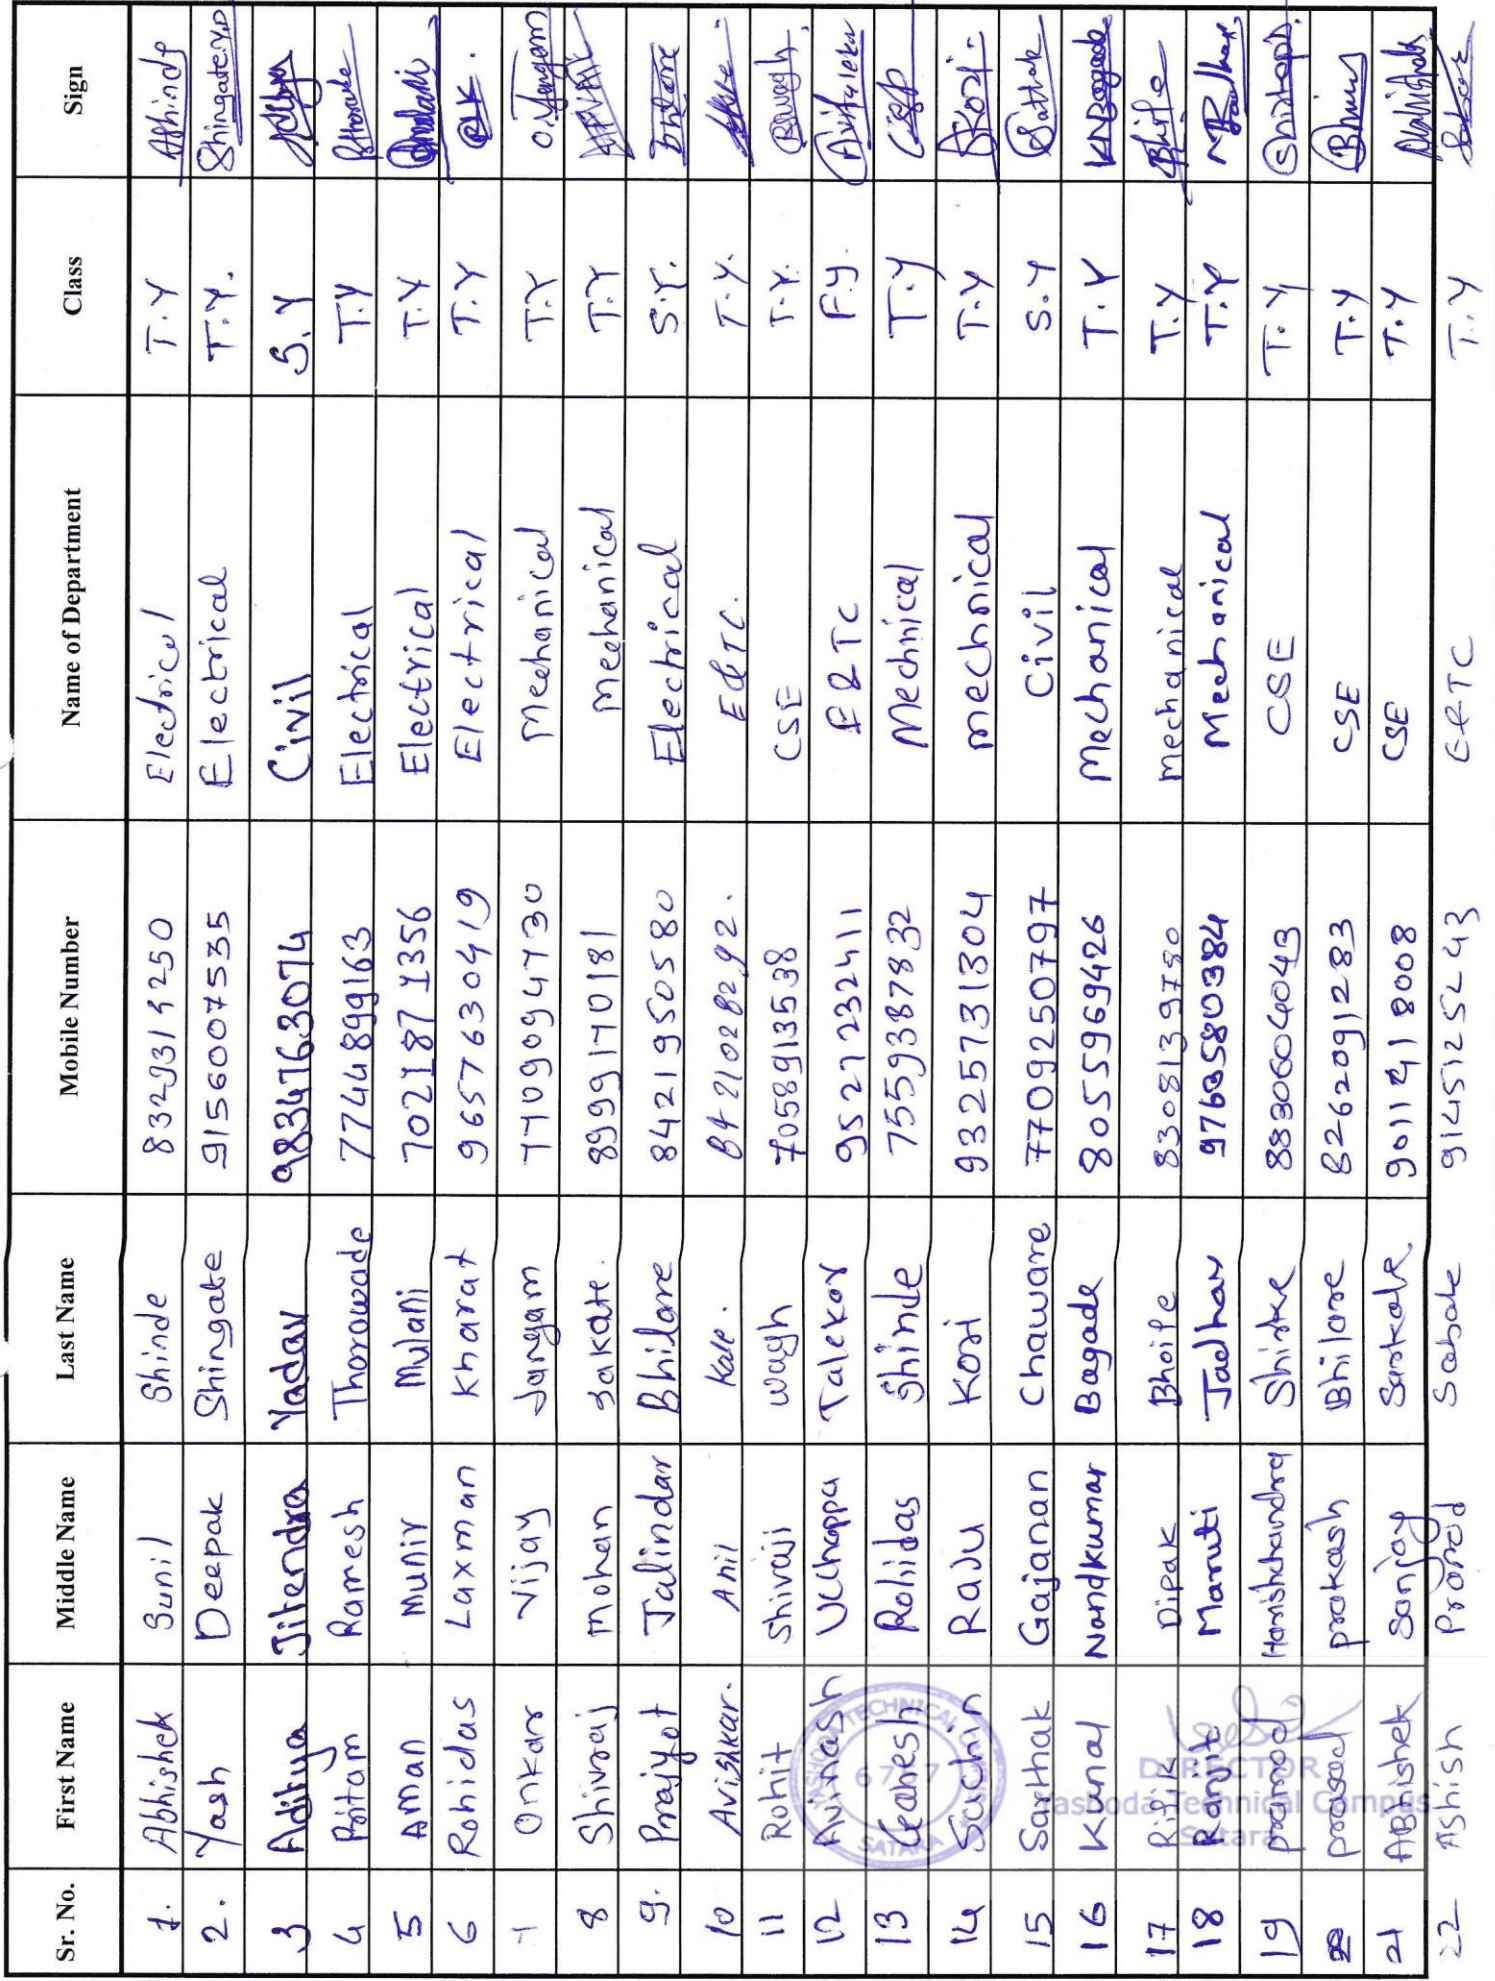 Sr. No. First Name Middle Name Last Name Mobile Number Name of Department Class Sign
1. Abhishek Sunil Shinde Electrical T.Y
2. Yash Deepak Shingate 9156007535 Electrical T.Y. Shingate.Y.D
3 Aditya Jitendra Yadav 9834763074 Civil S.Y
4 Pritam Ramesh Thorawade 7744899163 Electrical T.Y
5 Aman Munir Mulani 7021871356 Electrical T.Y
6 Rohidas Laxman Kharat 9657630419 Electrical T.Y
7 Onkar Vijay Jangam 7709094730 Mechanical T.Y O.V.Jangam
8 Shivraj Mohan Jakate. 8999170181 Mechanical T.Y
9. Prajyot Jalindar Bhilare 8421950580 Electrical S.Y.
10 Avishkar. Anil Kale. 8421028292. E&TC. T.Y.
11 Rohit Shivaji Wagh 7058913538 CSE T.Y.
12 Avinash Uchappa Talekar 9527232411 E&TC F.Y.
13 Rohidas Shinde 7559387832 Mechnical T.Y
14 Sachin Raju Kori 9325731304 mechnical T.Y
15 Sarthak Gajanan Chaware 7709250797 Civil S.Y
16 Kunal Nandkumar Bagade 8055969426 Mechanical T.Y
17 Dipak Bhoile 8308139780 mechanical T.Y
18 Ranjit Maruti Jadhav 9763580384 Mechanical T.Y
19 pramod Harishchandra Shirke 8830604043 CSE T.Y
20 prasad prakash Bhilare 8262091283 CSE T.Y
21 ABhishek Sanjay 9011418008 CSE T.Y
22 Ashish Sabale E&TC T.Y
YASHODA TECHNICAL CAMPUS
SATARA
DIRECTOR
Yashoda Technical Campus
Satara